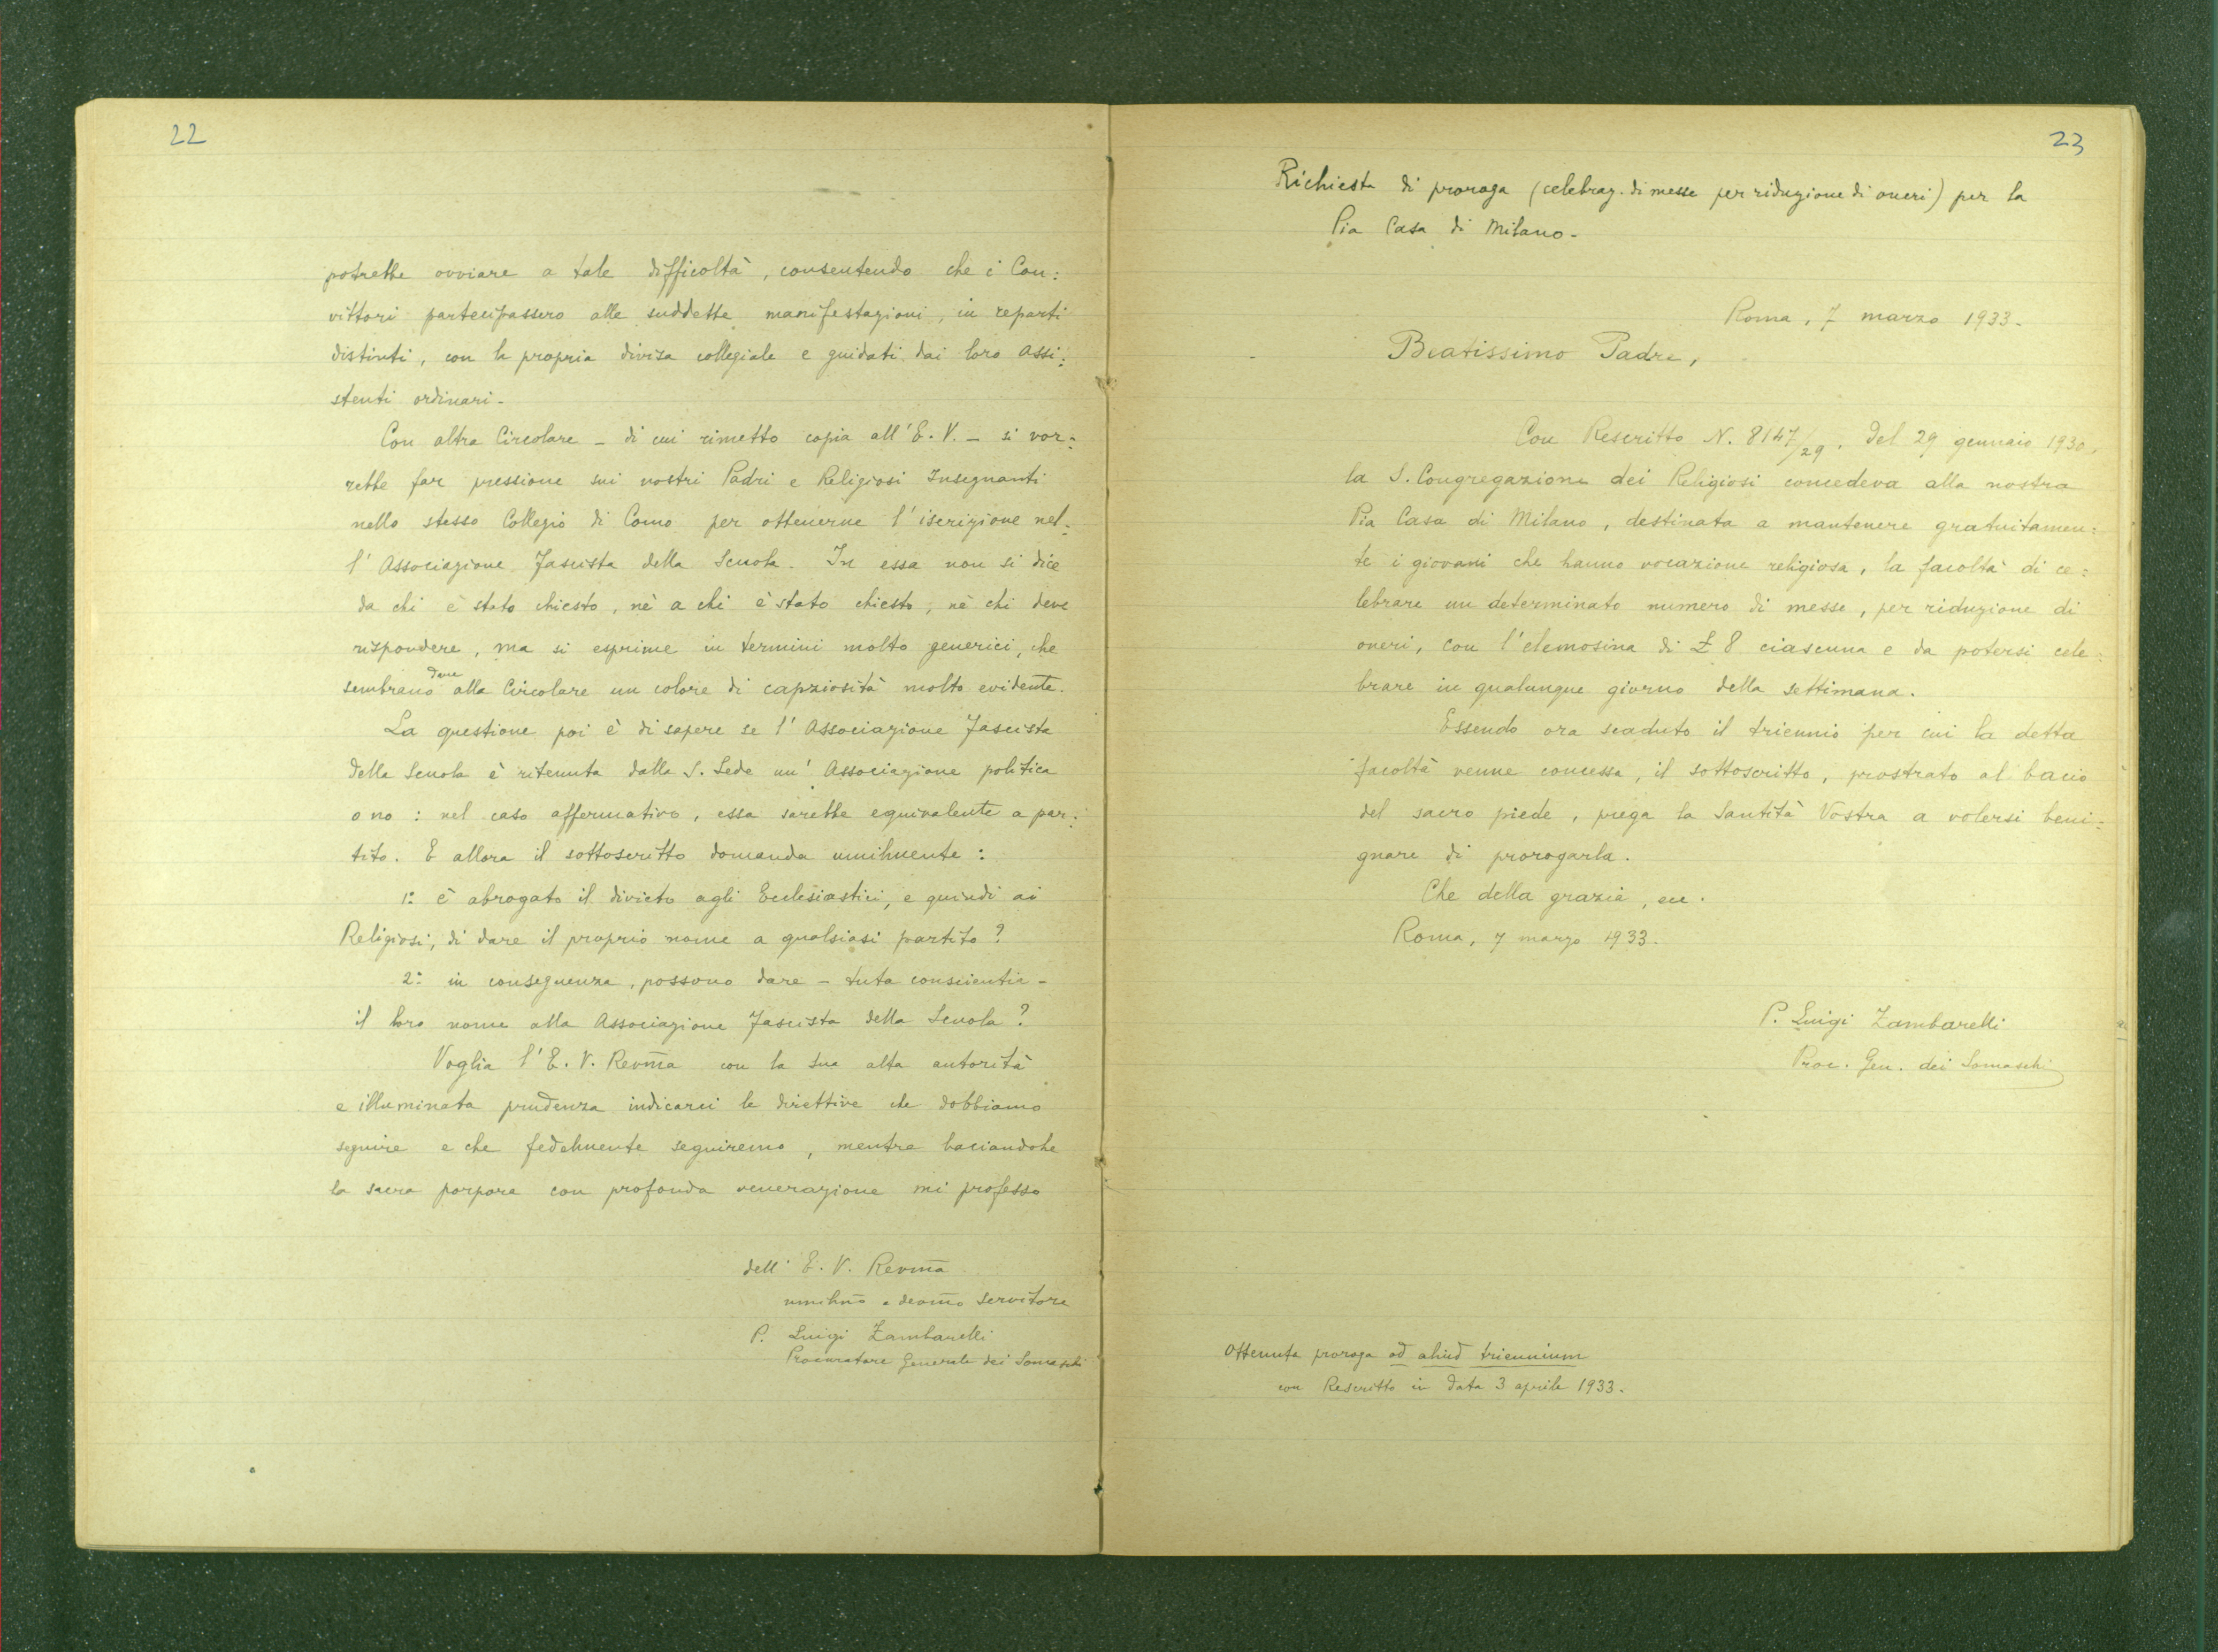 22
potrebbe ovviare a tale difficoltà, consentendo che i Con:
vittori partecipassero alle suddette manifestazioni, in reparti
distinti, con la propria divisa collegiale e guidati dai loro Assi:
stenti ordinari.
Con altra Circolare - di cui rimetto copia all'E. V. - si vor:
rebbe far pressione sui nostri Padri e Religiosi Insegnanti
nello stesso Collegio di Como per ottenerne l'iscrizione nel:
l'Associazione Fascista della Scuola. In essa non si dice
da chi è stato chiesto, nè a chi è stato chiesto, nè chi deve
rispondere, ma si esprime in termini molto generici, che
sembrano dare alla Circolare un colore di capziosità molto evidente.
La questione poi è di sapere se l'Associazione Fascista
della Scuola è ritenuta dalla S. Sede un'Associazione politica
o no: nel caso affermativo, essa sarebbe equivalente a par:
tito. E allora il sottoscritto domanda umilmente:
1: è abrogato il divieto agli Ecclesiastici, e quindi ai
Religiosi, di dare il proprio nome a qualsiasi partito?
2: in conseguenza, possono dare - tuta conscientia -
il loro nome alla Associazione Fascista della Scuola?
Voglia l'E. V. Revm̄a con la sua alta autorità
e illuminata prudenza indicarci le direttive che dobbiamo
seguire e che fedelmente seguiremo, mentre baciandole
la sacra porpora con profonda venerazione mi professo
dell'E. V. Revm̄a
umilm̄o e devm̄o servitore
P. Luigi Zambarelli
Procuratore Generale dei Somaschi
23
Richiesta di proroga (celebraz. di messe per riduzione di oneri) per la
Pia Casa di Milano-
Roma, 7 marzo 1933.
Beatissimo Padre,
Con Rescritto N. 8147/29. del 29 gennaio 1930,
la S. Congregazione dei Religiosi concedeva alla nostra
Pia Casa di Milano, destinata a mantenere gratuitamen:
te i giovani che hanno vocazione religiosa, la facoltà di ce:
lebrare un determinato numero di messe, per riduzione di
oneri, con l'elemosina di £ 8 ciascuna e da potersi cele:
brare in qualunque giorno della settimana.
Essendo ora scaduto il triennio per cui la detta
facoltà venne concessa, il sottoscritto, prostrato al bacio
del sacro piede, prega la Santità Vostra a volersi beni:
gnare di prorogarla.
Che della grazia, ecc.
Roma, 7 marzo 1933.
P. Luigi Zambarelli
Proc. Gen. dei Somaschi
Ottenuta proroga ad aliud triennium
con Rescritto in data 3 aprile 1933.